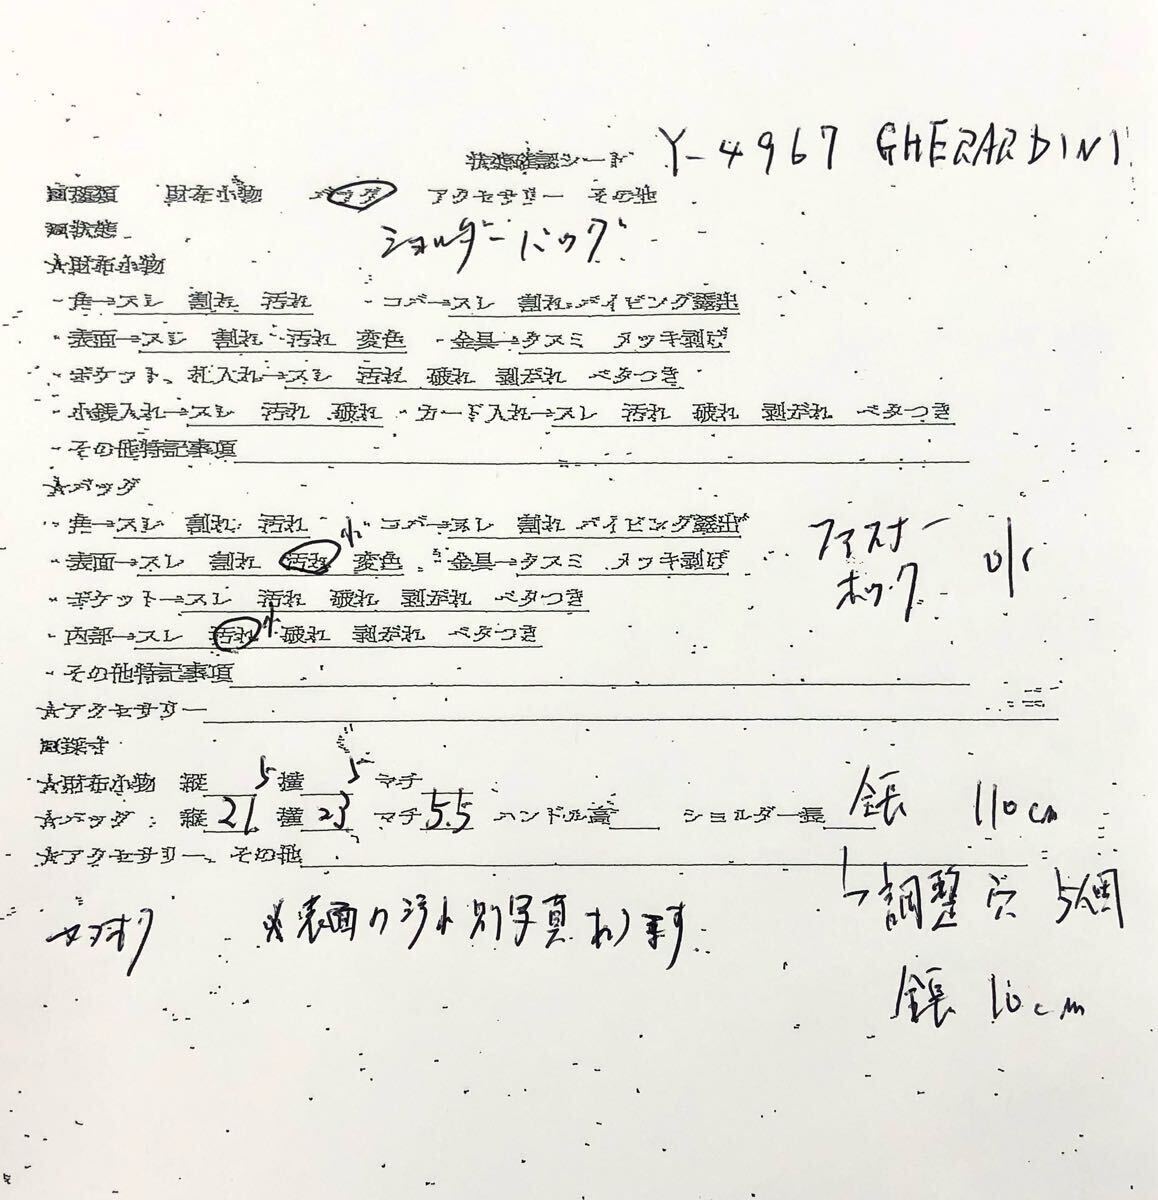 状態確認シート Y-4967 GHERARDINI
□種類 財布小物 バッグ アクセサリー その他
□状態 ショルダーバッグ
☆財布小物
・角→スレ 割れ 汚れ ・コバ→スレ 割れ パイピング露出
・表面→スレ 割れ 汚れ 変色 ・金具→クスミ メッキ剥げ
・ポケット、札入れ→スレ 汚れ 破れ 剥がれ ベタつき
・小銭入れ→スレ 汚れ 破れ ・カード入れ→スレ 汚れ 破れ 剥がれ ベタつき
・その他特記事項
☆バッグ
・角→スレ 割れ 汚れ ・コバ→スレ 割れ パイピング露出 ファスナー
・表面→スレ 割れ 汚れ 小 変色 ・金具→クスミ メッキ剥げ o/k
・ポケット→スレ 汚れ 破れ 剥がれ ベタつき ホック
・内部→スレ 汚れ 小 破れ 剥がれ ベタつき
・その他特記事項
☆アクセサリー
□採寸
☆財布小物 縦 5 横 5 マチ
☆バッグ:縦 21 横 23 マチ 5.5 ハンドル高 ショルダー長 全長 110cm
☆アクセサリー、その他
↳調整穴 5個
ヤフオク ※表面の汚れ別写真あります
全長 10cm